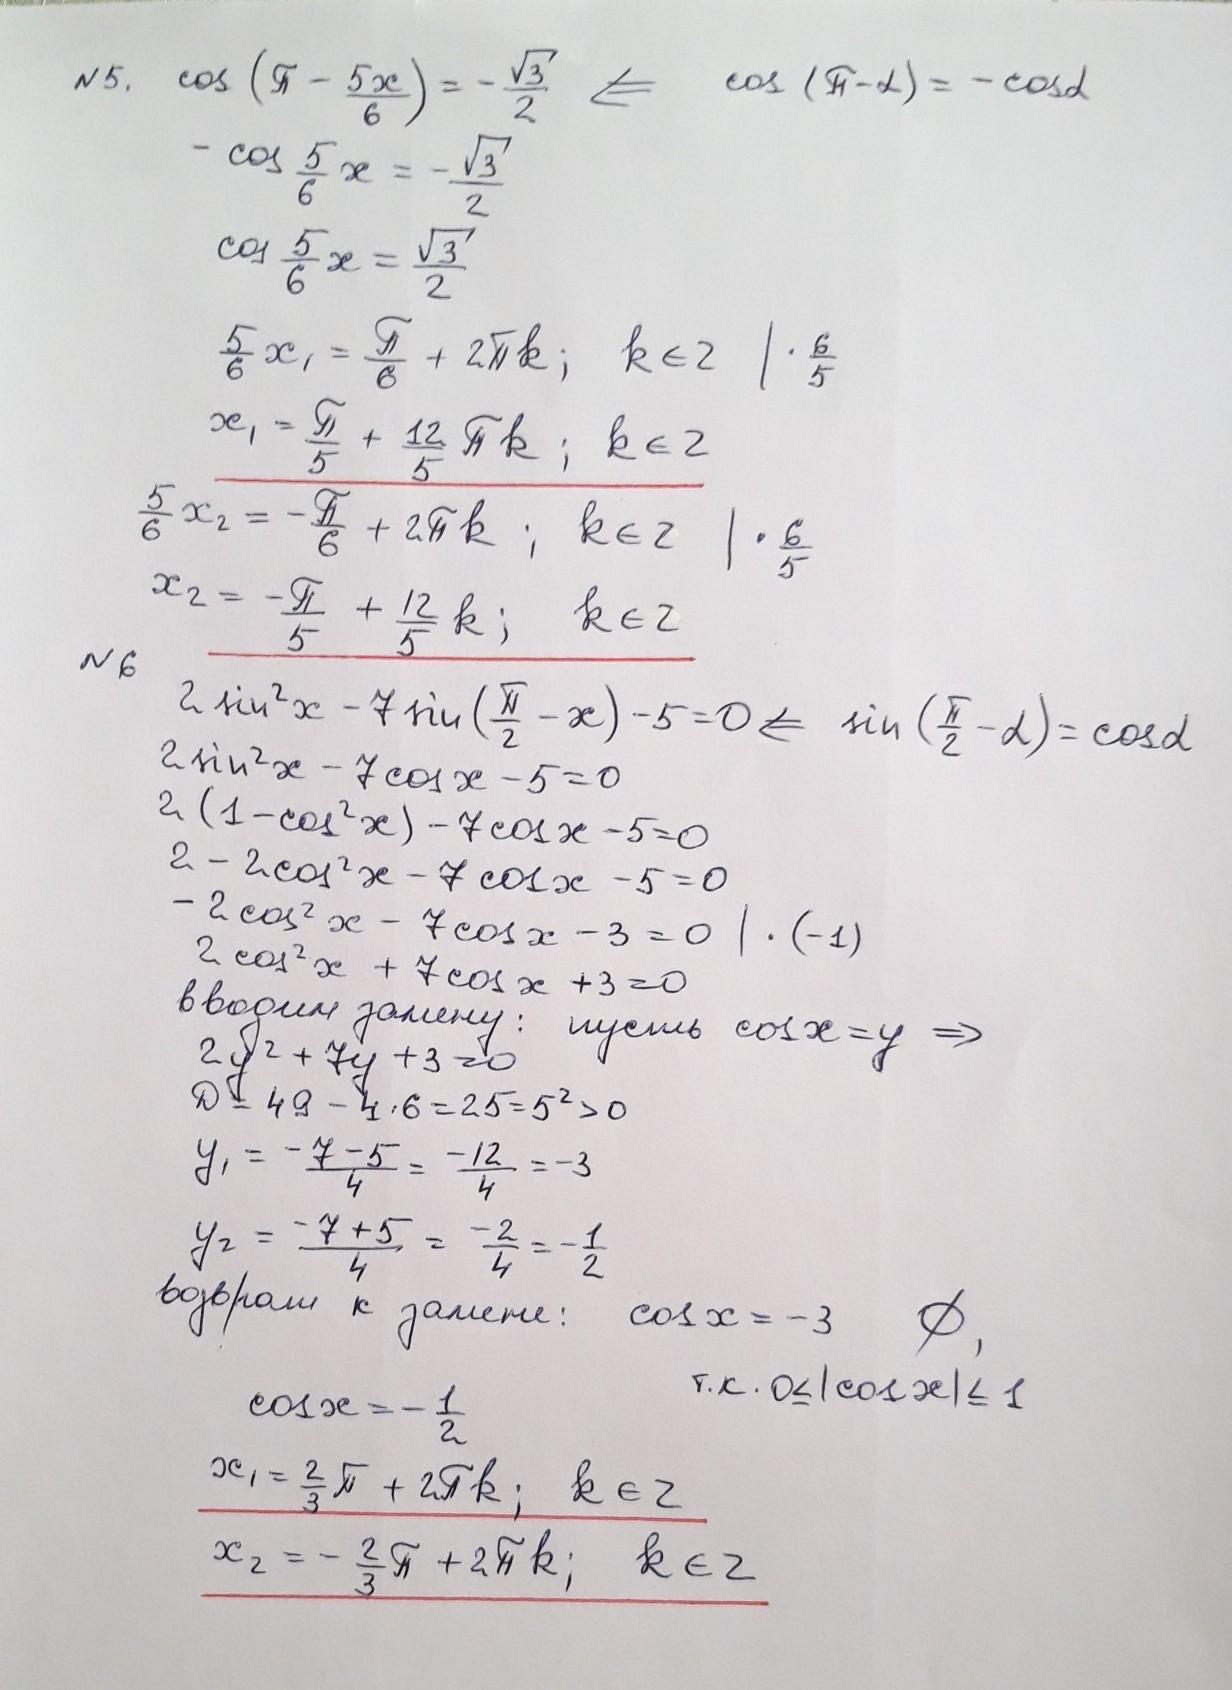 N5. cos(π - 5x/6) = -√3/2 ⇐ cos(π-α) = -cosα
- cos 5/6 x = -√3/2
cos 5/6 x = √3/2
5/6 x₁ = π/6 + 2πk; k∈Z | · 6/5
x₁ = π/5 + 12/5 πk; k∈Z
5/6 x₂ = -π/6 + 2πk; k∈Z | · 6/5
x₂ = -π/5 + 12/5 k; k∈Z
N6
2sin²x - 7sin(π/2 - x) - 5 = 0 ⇐ sin(π/2 - α) = cosα
2sin²x - 7cosx - 5 = 0
2(1-cos²x) - 7cosx - 5 = 0
2 - 2cos²x - 7cosx - 5 = 0
-2cos²x - 7cosx - 3 = 0 | · (-1)
2cos²x + 7cosx + 3 = 0
вводим замену: пусть cosx = y ⇒
2y² + 7y + 3 = 0
D = 49 - 4·6 = 25 = 5² > 0
y₁ = -7-5/4 = -12/4 = -3
y₂ = -7+5/4 = -2/4 = -1/2
возврат к замене: cosx = -3 ∅,
т.к. 0≤|cosx|≤1
cosx = -1/2
x₁ = 2/3 π + 2πk; k∈Z
x₂ = -2/3 π + 2πk; k∈Z